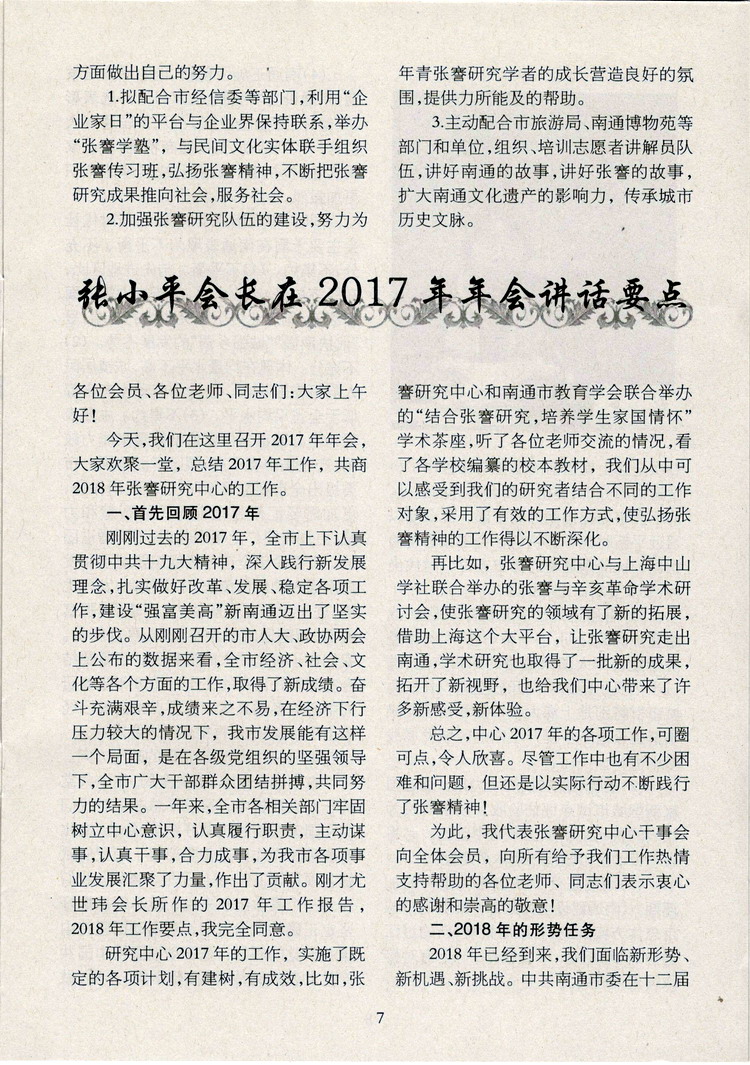 方面做出自己的努力。
1.拟配合市经信委等部门,利用“企
业家日”的平台与企业界保持联系,举办
“张謇学塾”，与民间文化实体联手组织
张謇传习班,弘扬张謇精神,不断把张謇
研究成果推向社会,服务社会。
2.加强张謇研究队伍的建设,努力为
年青张謇研究学者的成长营造良好的氛
围,提供力所能及的帮助。
3.主动配合市旅游局、南通博物苑等
部门和单位,组织、培训志愿者讲解员队
伍,讲好南通的故事,讲好张謇的故事,
扩大南通文化遗产的影响力，传承城市
历史文脉。
张小平会长在2017年年会讲话要点
各位会员、各位老师、同志们:大家上午
好!
今天,我们在这里召开2017年年会,
大家欢聚一堂，总结2017年工作，共商
2018年张謇研究中心的工作。
一、首先回顾2017年
刚刚过去的2017年，全市上下认真
贯彻中共十九大精神，深入践行新发展
理念,扎实做好改革、发展、稳定各项工
作,建设“强富美高”新南通迈出了坚实
的步伐。从刚刚召开的市人大、政协两会
上公布的数据来看,全市经济、社会、文
化等各个方面的工作,取得了新成绩。奋
斗充满艰辛,成绩来之不易,在经济下行
压力较大的情况下，我市发展能有这样
一个局面，是在各级党组织的坚强领导
下,全市广大干部群众团结拼搏,共同努
力的结果。一年来,全市各相关部门牢固
树立中心意识，认真履行职责，主动谋
事,认真干事,合力成事,为我市各项事
业发展汇聚了力量,作出了贡献。刚才尤
世玮会长所作的2017年工作报告,
2018年工作要点,我完全同意。
研究中心2017年的工作，实施了既
定的各项计划,有建树,有成效,比如,张
謇研究中心和南通市教育学会联合举办
的“结合张謇研究,培养学生家国情怀”
学术茶座,听了各位老师交流的情况,看
了各学校编纂的校本教材，我们从中可
以感受到我们的研究者结合不同的工作
对象,采用了有效的工作方式,使弘扬张
謇精神的工作得以不断深化。
再比如，张謇研究中心与上海中山
学社联合举办的张謇与辛亥革命学术研
讨会,使张謇研究的领域有了新的拓展,
借助上海这个大平台，让张謇研究走出
南通,学术研究也取得了一批新的成果,
拓开了新视野，也给我们中心带来了许
多新感受,新体验。
总之,中心2017年的各项工作,可圈
可点,令人欣喜。尽管工作中也有不少困
难和问题，但还是以实际行动不断践行
了张謇精神!
为此，我代表张謇研究中心干事会
向全体会员，向所有给予我们工作热情
支持帮助的各位老师、同志们表示衷心
的感谢和崇高的敬意!
二、2018年的形势任务
2018年已经到来,我们面临新形势、
新机遇、新挑战。中共南通市委在十二届
7